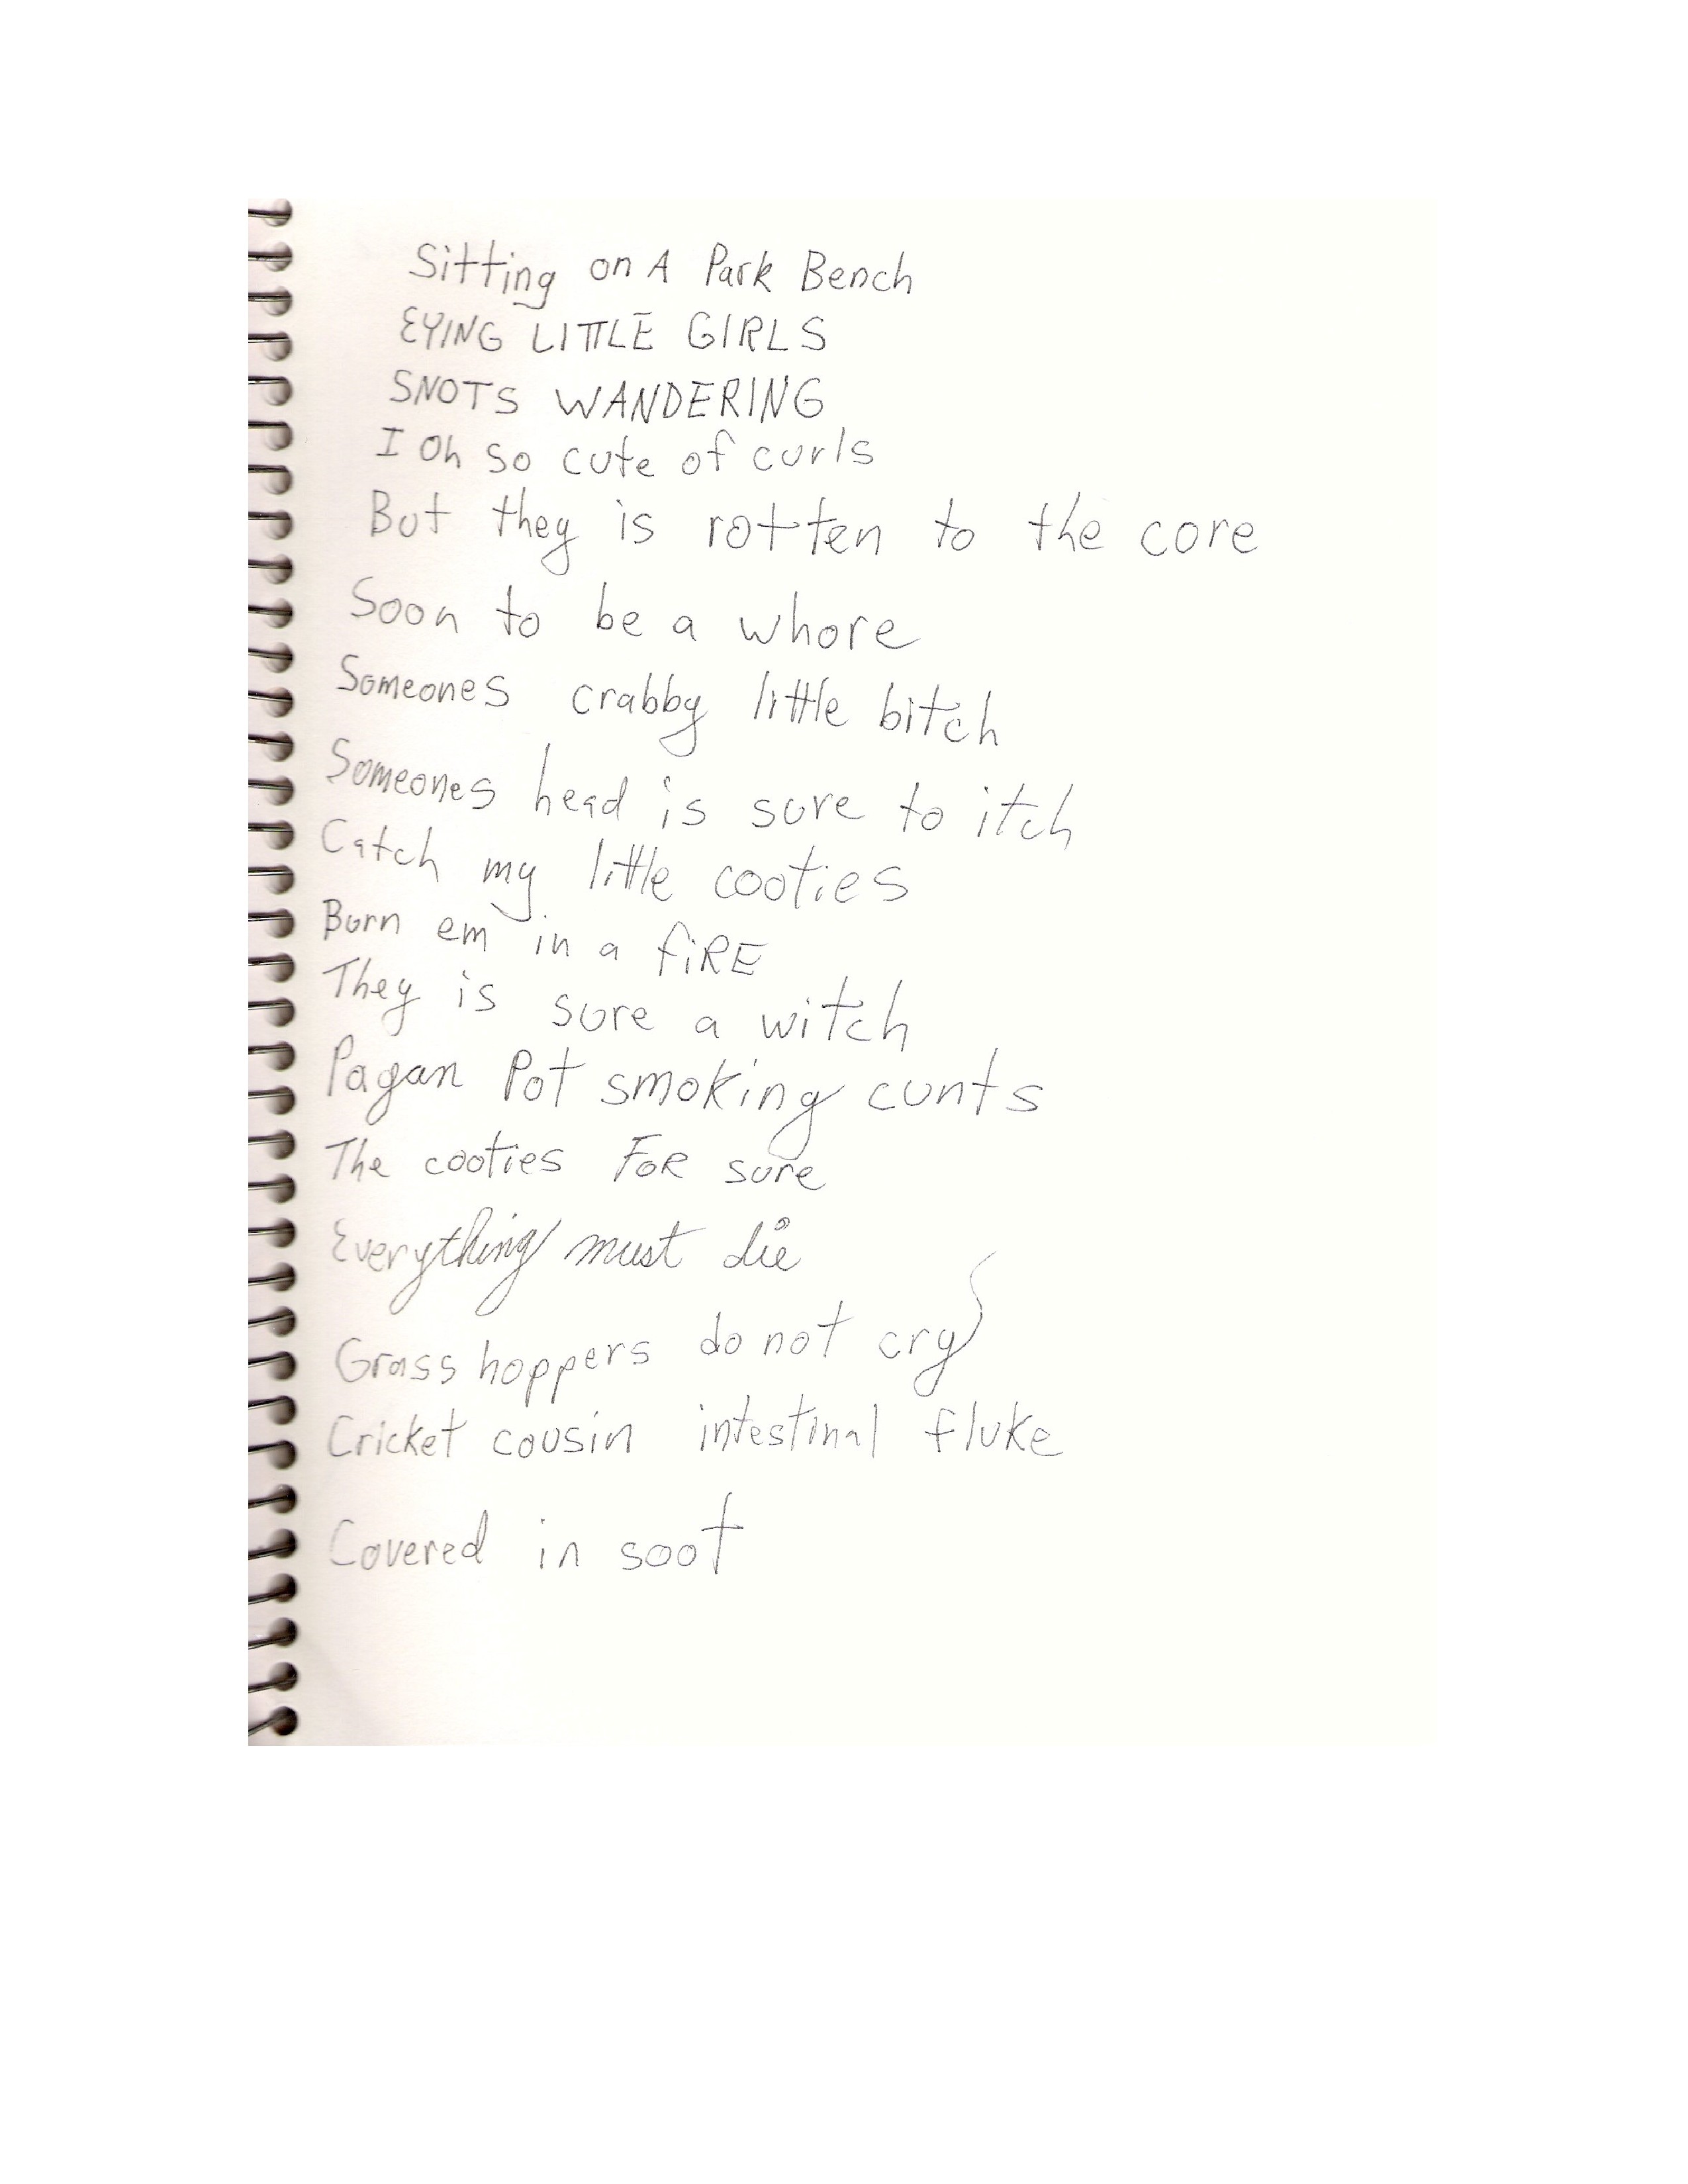 Sitting on A Park Bench
EYING LITTLE GIRLS
SNOTS WANDERING
I Oh so cute of curls
But they is rotten to the core
Soon to be a whore
Someones crabby little bitch
Someones head is sure to itch
Catch my little cooties
Burn em in a fiRE
They is sure a witch
Pagan Pot smoking cunts
The cooties FoR sure
Everything must die
Grass hoppers do not cry
Cricket cousin intestinal fluke
Covered in soot